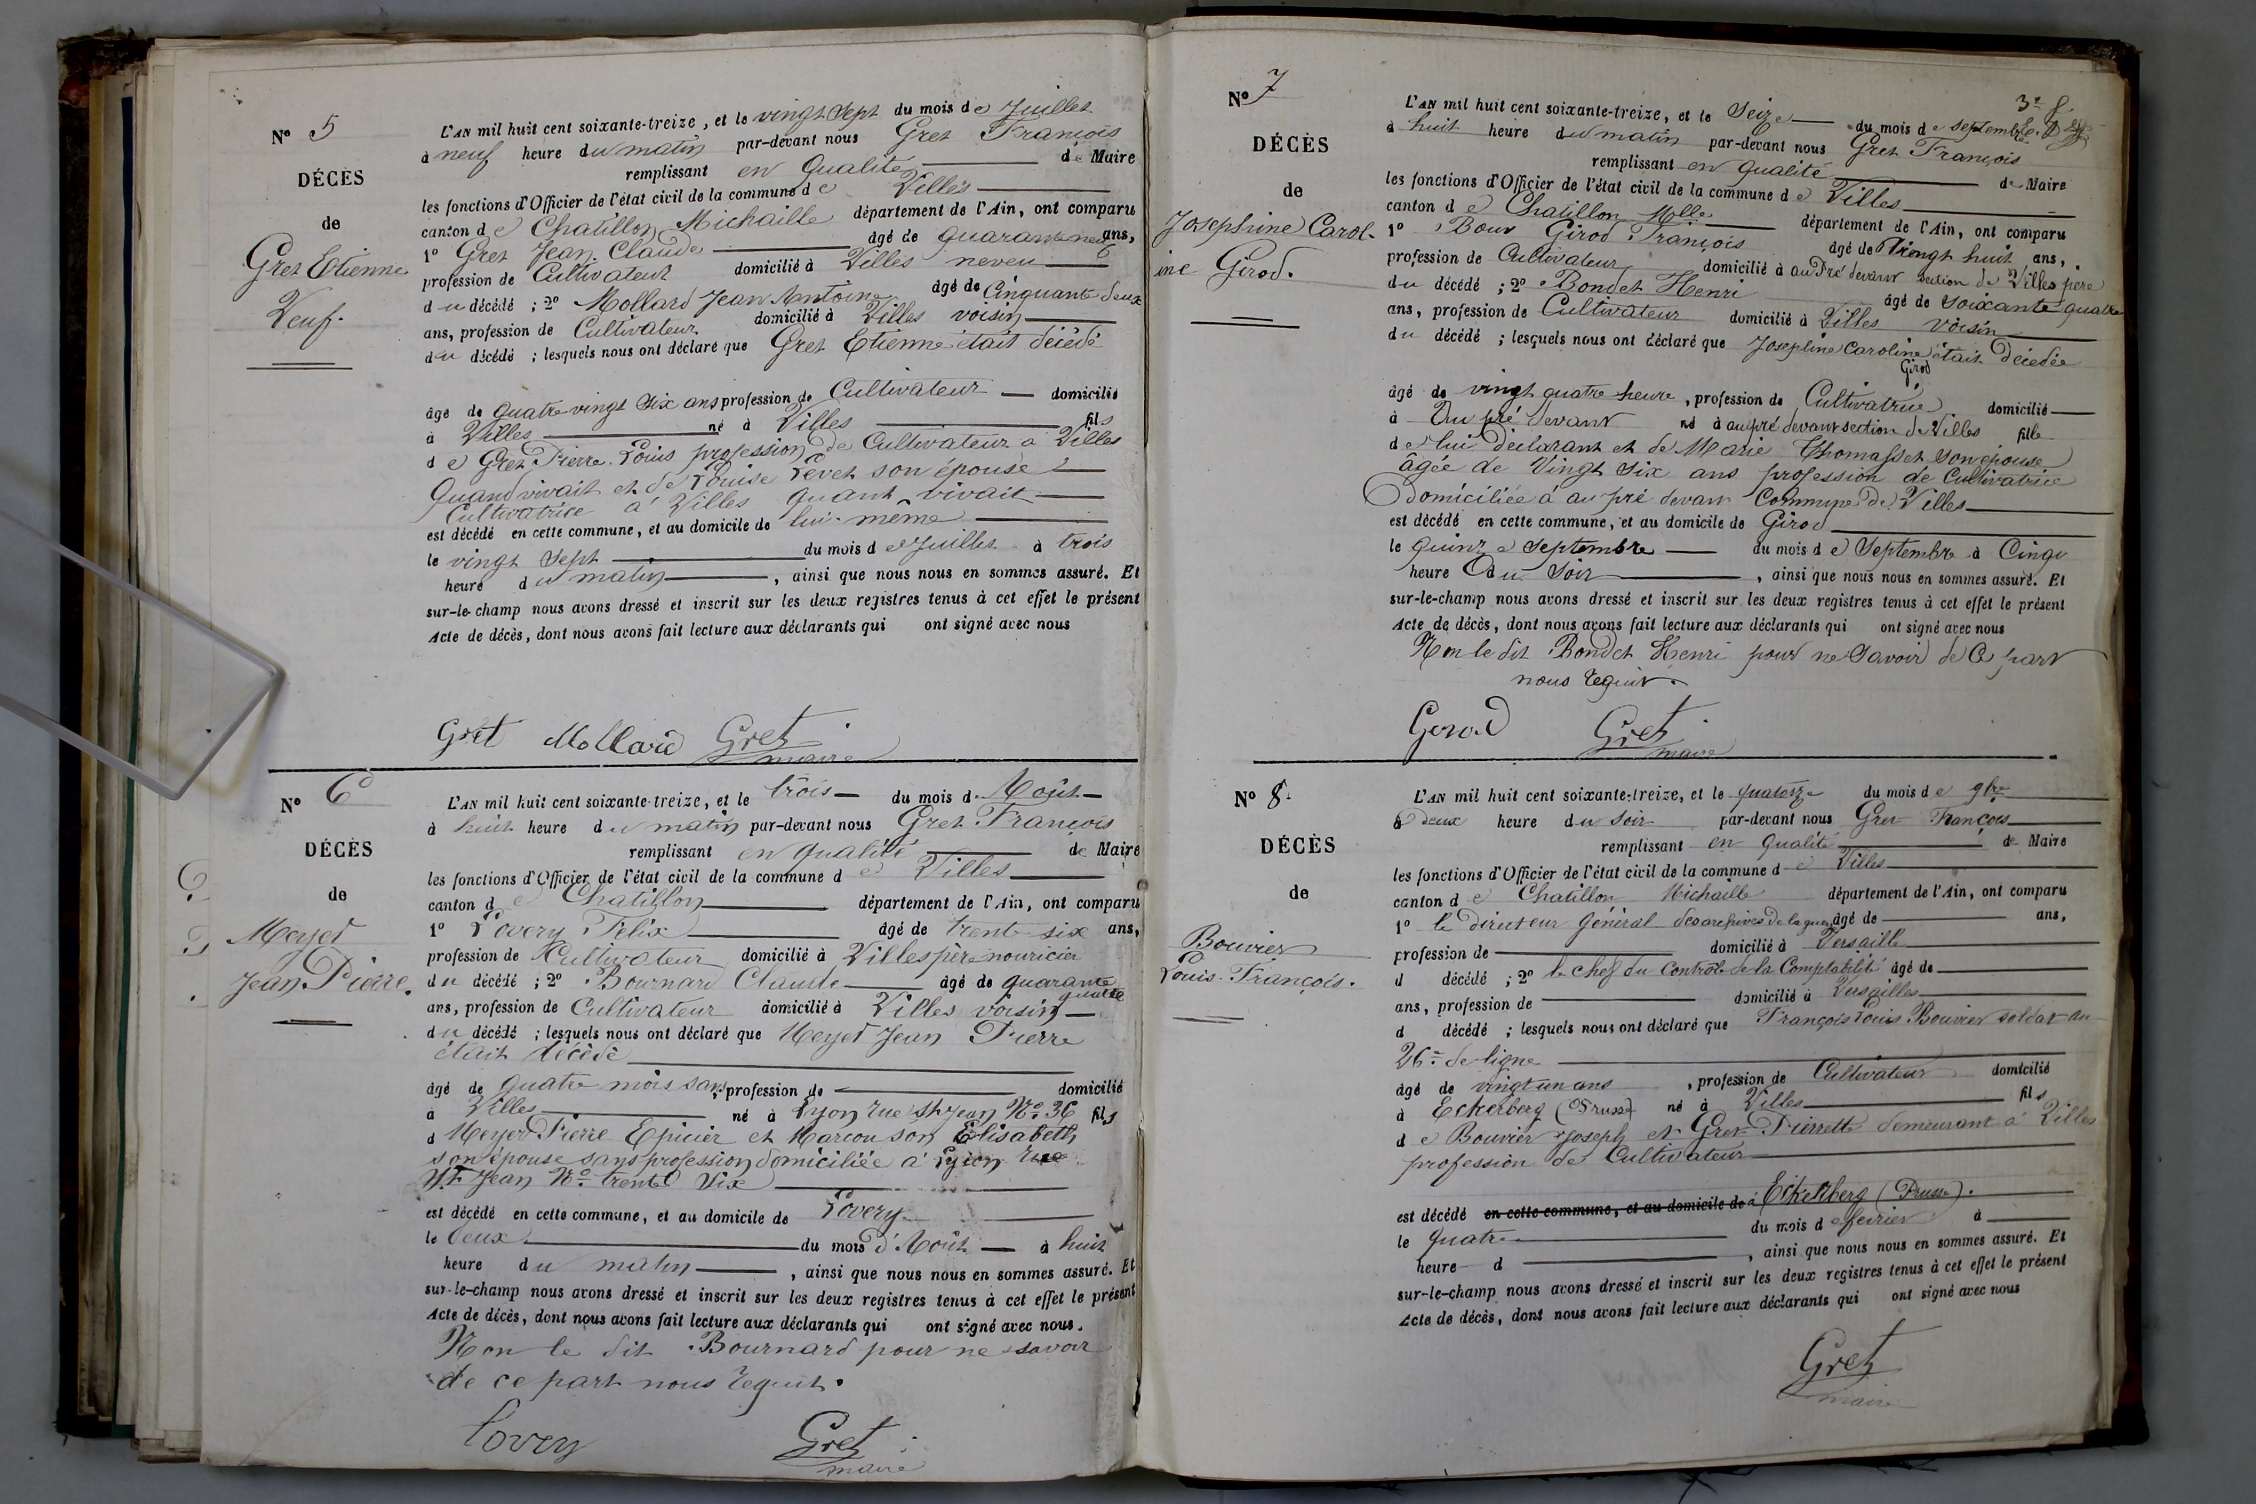 N° 5
DÉCÈS
de
Gret Etienne
Veuf.
L'AN mil huit cent soixante-treize, et le vingt sept du mois de Juillet
à neuf heure du matin par-devant nous Gret François
remplissant en qualité de Maire
les fonctions d'Officier de l'état civil de la commune de Villes
canton de Chatillon Michaille département de l'Ain, ont comparu
1° Gret Jean Claude âgé de quarante neuf ans,
profession de Cultivateur domicilié à Villes neveu
du décédé ; 2° Mollard Jean Antoine âgé de Cinquante deux
ans, profession de Cultivateur domicilié à Villes voisin
du décédé ; lesquels nous ont déclaré que Gret Etienne était décédé
âgé de quatre vingt six ans profession de Cultivateur domicilié
à Villes né à Villes fils
de Gret Pierre Louis profession de Cultivateur à Villes
Quand vivait et de Louise Levet son épouse
Cultivatrice à Villes quant vivait
est décédé en cette commune, et au domicile de lui-même
le vingt sept du mois de Juillet à trois
heure du matin, ainsi que nous nous en sommes assuré. Et
sur-le-champ nous avons dressé et inscrit sur les deux registres tenus à cet effet le présent
Acte de décès, dont nous avons fait lecture aux déclarants qui ont signé avec nous
Gret Mollard Gret
maire
N° 6
DÉCÈS
de
Meyet
Jean Pierre.
L'AN mil huit cent soixante-treize, et le trois du mois d'Août
à huit heure du matin par-devant nous Gret François
remplissant en qualité de Maire
les fonctions d'Officier de l'état civil de la commune de Villes
canton de Chatillon département de l'Ain, ont comparu
1° Lovery Félix âgé de trente six ans,
profession de Cultivateur domicilié à Villes père nouricier
du décédé ; 2° Bournard Claude âgé de quarante
quatre
ans, profession de Cultivateur domicilié à Villes voisin
du décédé ; lesquels nous ont déclaré que Meyet Jean Pierre
était décédé
âgé de quatre mois sans profession de domicilié
à Villes né à Lyon rue St Jean N° 36 fils
d Meyet Pierre Epicier et Marcou son Elisabeth
son épouse sans profession domiciliée à Lyon rue
St Jean N° trente six
est décédé en cette commune, et au domicile de Lovery
le deux du mois d'Août à huit
heure du matin, ainsi que nous nous en sommes assuré. Et
sur-le-champ nous avons dressé et inscrit sur les deux registres tenus à cet effet le présent
Acte de décès, dont nous avons fait lecture aux déclarants qui ont signé avec nous.
Non le dit Bournard pour ne savoir
de ce part nous requit.
Lovery Gret
maire
N° 7
DÉCÈS
de
Josephine Carol-
ine Girod.
L'AN mil huit cent soixante-treize, et le Seize du mois de septembre
à huit heure du matin par-devant nous Gret François
remplissant en qualité de Maire
les fonctions d'Officier de l'état civil de la commune de Villes
canton de Chatillon Mlle département de l'Ain, ont comparu
1° Girod François âgé de Vingt huit ans,
profession de Cultivateur domicilié à au Pré devant section de Villes père
du décédé ; 2° Bondet Henri âgé de soixante quatre
ans, profession de Cultivateur domicilié à Villes voisin
du décédé ; lesquels nous ont déclaré que Josephine Caroline était décédée
Girod
âgé de vingt quatre heure, profession de Cultivatrice domicilié
à Au pré devant né à au pré devant section de Villes fille
de lui déclarant et de Marie Thomasset son épouse
âgée de Vingt six ans profession de Cultivatrice
domiciliée à au pré devant Commune de Villes
est décédé en cette commune, et au domicile de Girod
le quinze septembre du mois de Septembre à Cinq
heure du soir, ainsi que nous nous en sommes assuré. Et
sur-le-champ nous avons dressé et inscrit sur les deux registres tenus à cet effet le présent
Acte de décès, dont nous avons fait lecture aux déclarants qui ont signé avec nous
Non le dit Bondet Henri pour ne savoir de ce part
nous requit.
Girod Gret
maire
N° 8
DÉCÈS
de
Bouvier
Louis-François.
L'AN mil huit cent soixante-treize, et le quatorze du mois de 9bre
à deux heure du soir par-devant nous Gret François
remplissant en qualité de Maire
les fonctions d'Officier de l'état civil de la commune de Villes
canton de Chatillon Michaille département de l'Ain, ont comparu
1° le directeur Général des archives de la guerre âgé de ans,
profession de domicilié à Versaille
d décédé ; 2° le chef du Contrôle de la Comptabilité âgé de
ans, profession de domicilié à Versailles
d décédé ; lesquels nous ont déclaré que François Louis Bouvier soldat au
26e de ligne
âgé de vingt un ans, profession de Cultivateur domicilié
à Eckerberg (Prusse) né à Villes fils
de Bouvier Joseph et Gret Pierrette demeurant à Villes
profession de Cultivateur
est décédé en cette commune, et au domicile de à Eckerberg (Prusse).
le quatre du mois de fevrier à
heure d, ainsi que nous nous en sommes assuré. Et
sur-le-champ nous avons dressé et inscrit sur les deux registres tenus à cet effet le présent
Acte de décès, dont nous avons fait lecture aux déclarants qui ont signé avec nous
Gret
maire